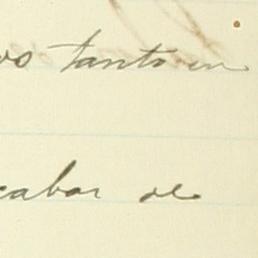 os tanto en
cabar de